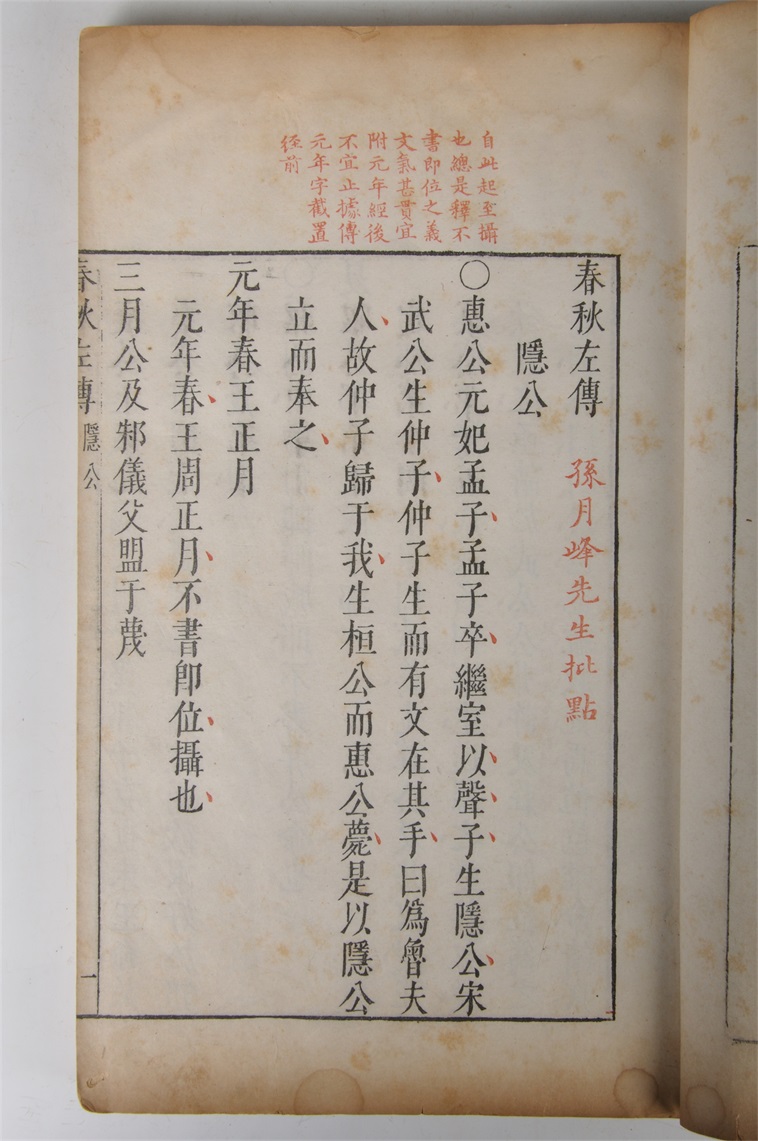 自此起至攝
也總是釋不
書即位之義
文氣甚貫宜
附元年經後
不宜止據傳
元年字截置
經前
春秋左傳 孫月峰先生批點
隱公
○惠公元妃孟子孟子卒繼室以聲子生隱公宋
武公生仲子仲子生而有文在其手曰為魯夫
人故仲子歸于我生桓公而惠公薨是以隱公
立而奉之
元年春王正月
元年春王周正月不書卽位攝也
三月公及邾儀父盟于蔑
春秋左傳 隱公 一